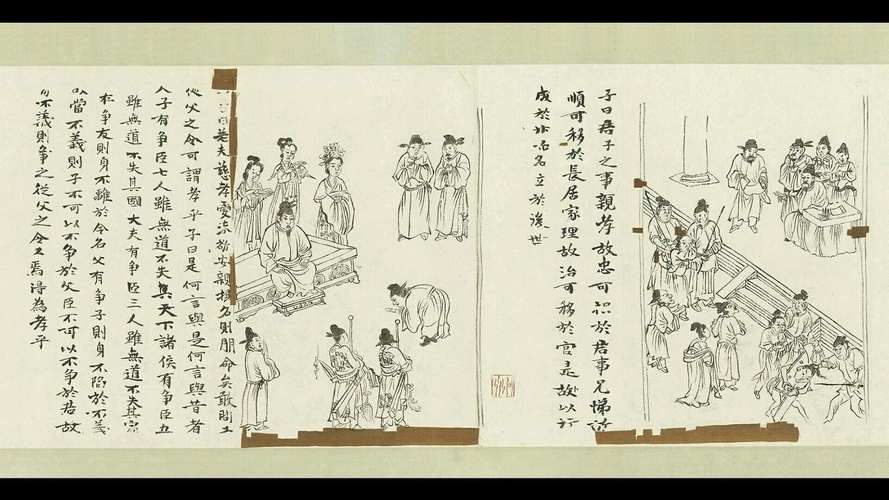 子曰君子之事親孝故忠可移於君事兄悌故
順可移於長居家理故治可移於官是故以行
成於內名立於後世
子曰若夫慈孝愛恭敬安親揚名則聞命矣敢問
從父之令可謂孝乎子曰是何言與是何言與昔者
子有爭臣七人雖無道不失其天下諸侯有爭臣五
雖無道不失其國大夫有爭臣三人雖無道不失其家
有爭友則身不離於令名父有爭子則身不陷於不義
當不義則子不可以不爭於父臣不可以不爭於君故
不義則爭之從父之令又焉得為孝乎